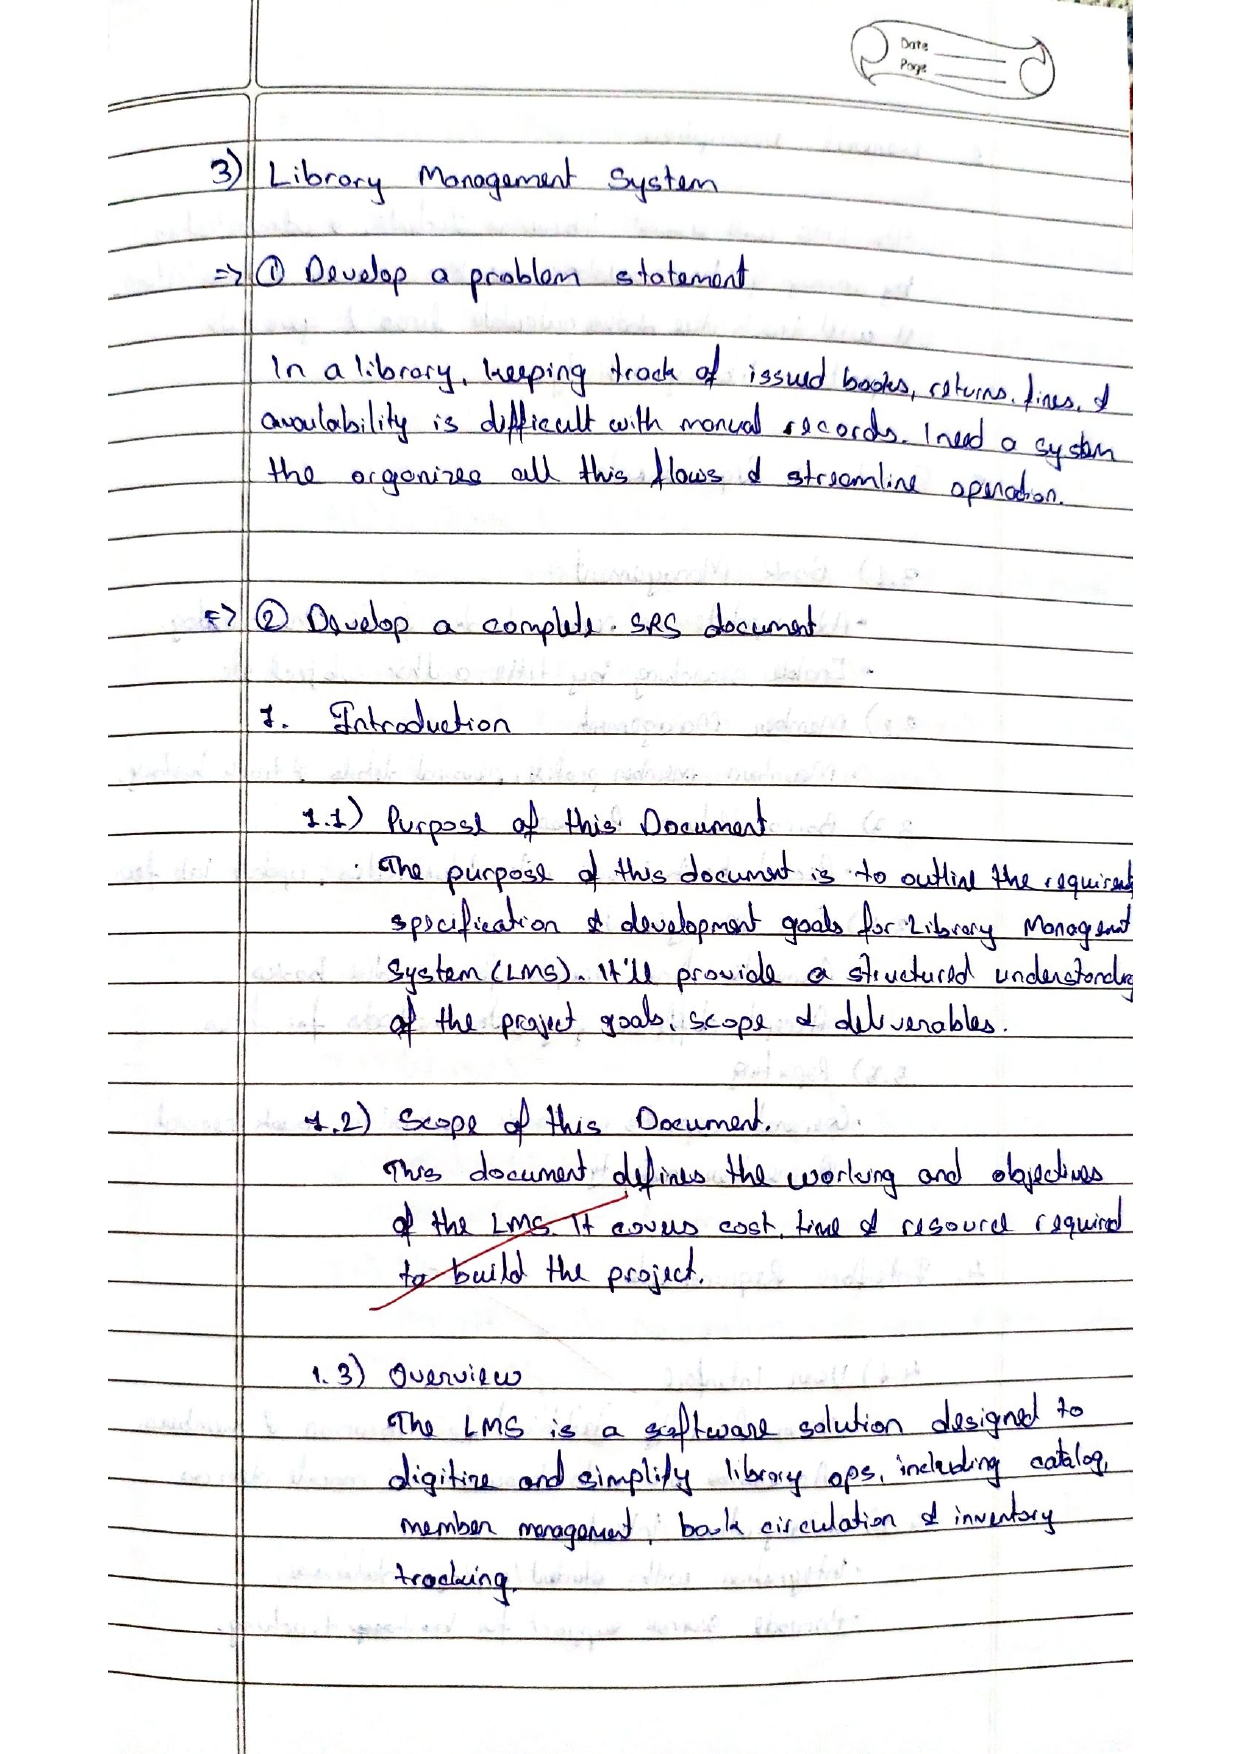 Date
Page
3) Library Management System
=> ① Develop a problem statement
In a library, keeping track of issued books, returns, fines, &
availability is difficult with manual records. I need a system
the organizes all this flows & streamline operation.
=> ② Develop a complete SRS document
1. Introduction
1.1) Purpose of this Document
The purpose of this document is to outline the requirement
specification & development goals for Library Managemnt
System (LMS). It'll provide a structured understanding
of the project goals, scope & deliverables.
1.2) Scope of this Document.
This document defines the working and objectives
of the LMS. It covers cost, time & resource required
to build the project.
1.3) Overview
The LMS is a software solution designed to
digitize and simplify library ops, including catalog,
member management, book circulation & inventory
tracking.